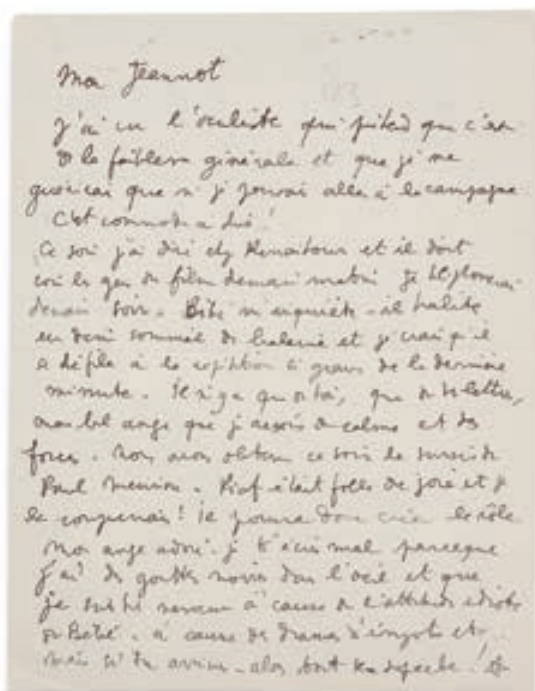 Mon Jeannot
J'ai vu l'oculiste qui prétend que c'est
de la faiblesse générale et que je ne
guérirai que si je pouvais aller à la campagne
C'est commode à dire!
Ce soir j'ai dîné chez et il doit
voir les gens du film demain matin je
demain soir. Bébé m'inquiète - il habite
en demi sommeil de et je crois qu'il
a défilé à la si grave de la dernière
minute. Il n'y a que toi, que ta lettre,
mon bel ange que j'aspire du calme et des
forces. Nous avons obtenu ce soir le sursis de
Paul Meurisse. Piaf était folle de joie et je
la comprenais! Il pourra donc créer le rôle
Mon ange adoré. je t'écris mal parceque
j'ai des gouttes noires dans l'œil et que
je suis très nerveux à cause de l'attitude idiote
de Bébé. à cause de drames et
mais si tu arrives - alors tout